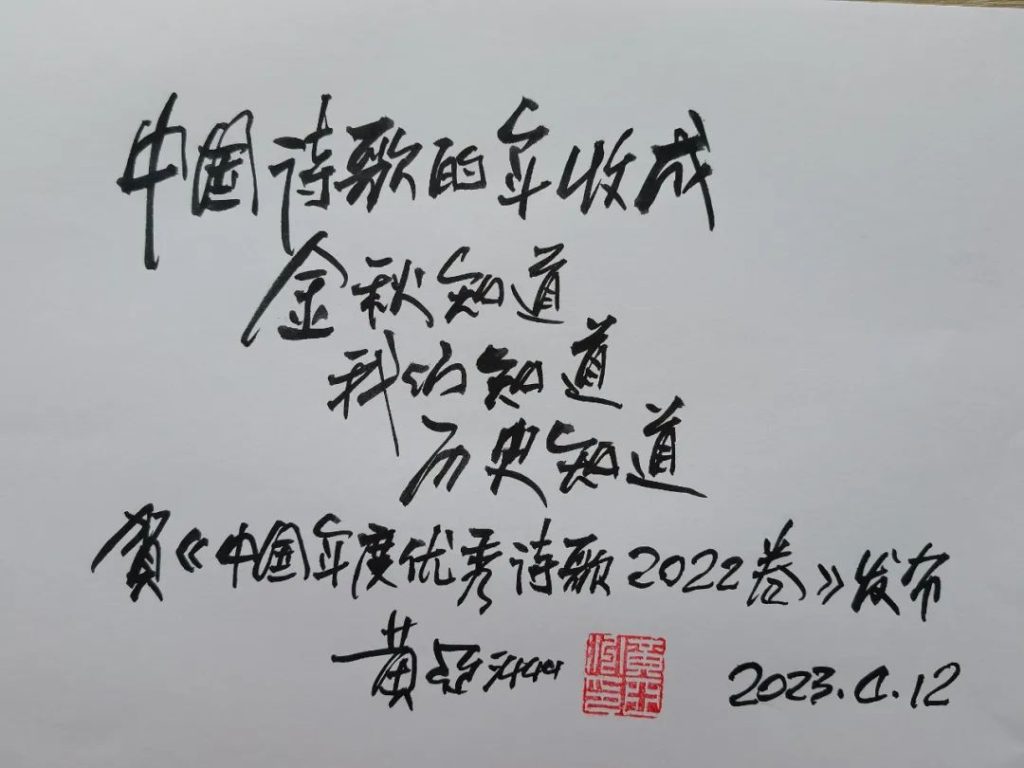 中国诗歌的年收成
金秋知道
我们知道
历史知道
贺《中国年度优秀诗歌2022卷》发布
黄亚洲
2023.4.12